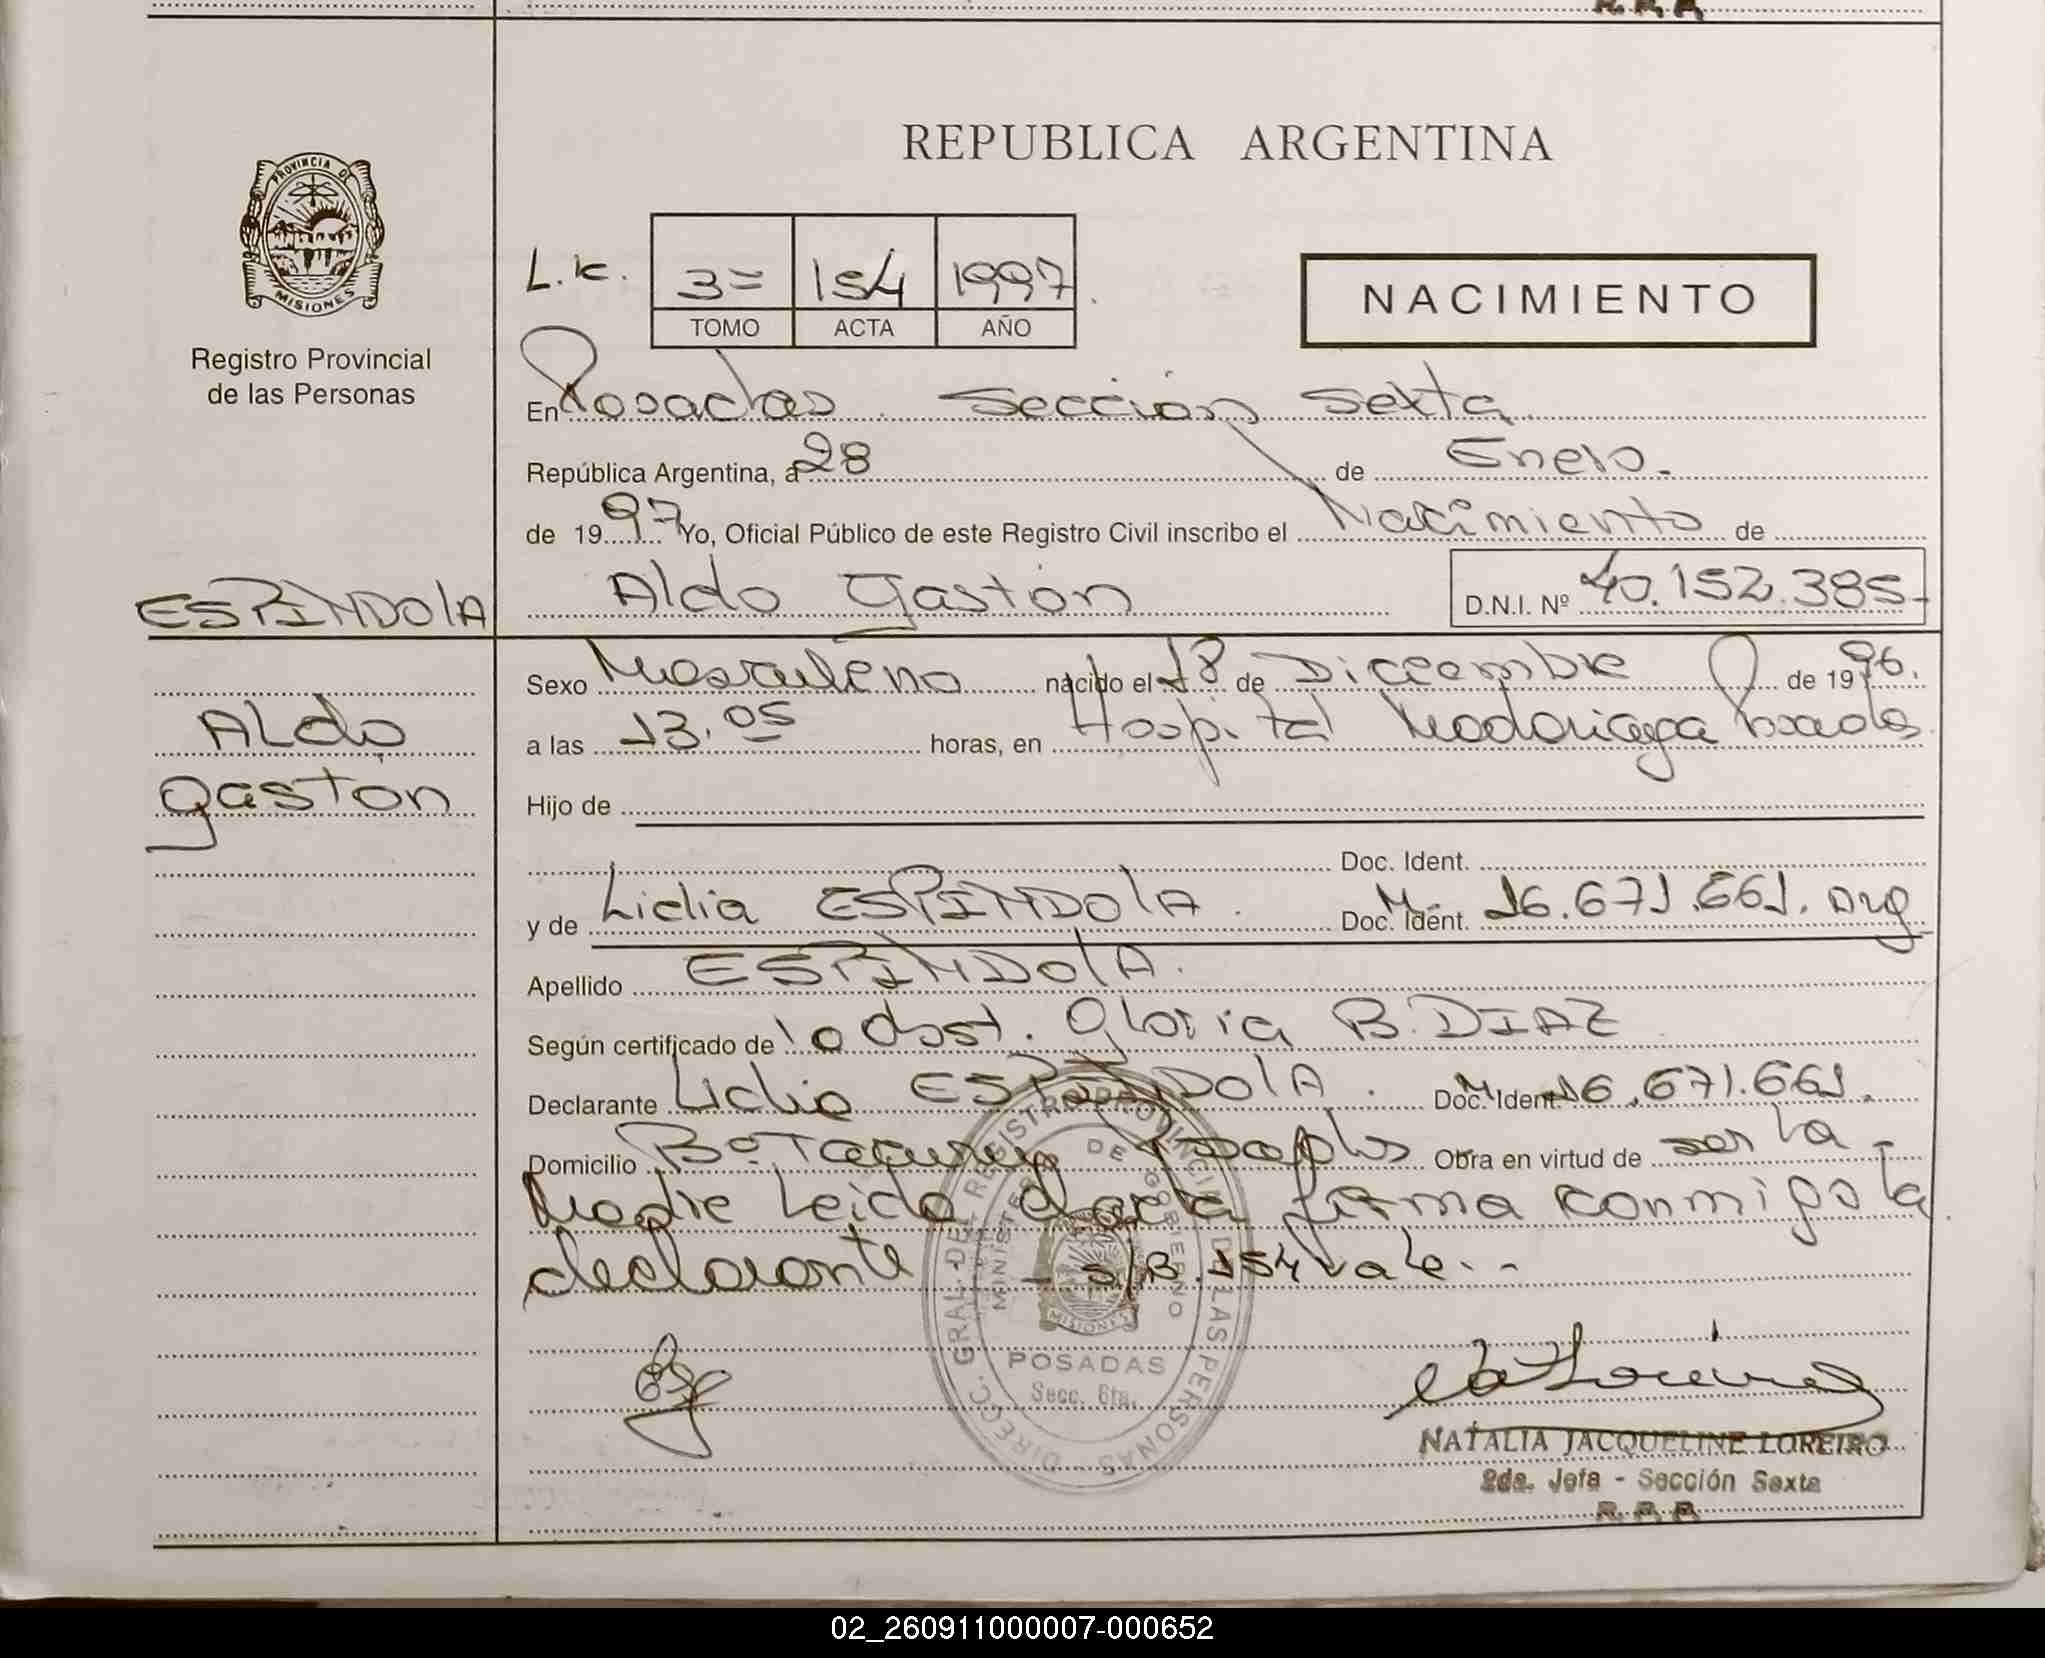 REPUBLICA ARGENTINA
PROVINCIA DE
MISIONES
Registro Provincial
de las Personas
L.K. 3= 154 1997
TOMO ACTA AÑO
NACIMIENTO
En Posadas Sección Sexta
República Argentina, a 28 de Enero.
de 1997 Yo, Oficial Público de este Registro Civil inscribo el Nacimiento de
ESPINDOLA
Aldo Gastón D.N.I. Nº 40.152.385
Aldo
Gastón
Sexo Masculino nacido el 18 de Diciembre de 1996.
a las 13.05 horas, en Hospital Madariaga Posadas
Hijo de
Doc. Ident.
y de Lidia ESPINDOLA. Doc. Ident. M. 16.671.661. Arg
Apellido ESPINDOLA.
Según certificado de la Obst. Gloria B. DIAZ
Declarante Lidia ESPINDOLA. Doc. Ident. M. 16.671.661.
Domicilio Bº Posadas Obra en virtud de ser la
Madre Leida el acta firma conmigo la
declarante - S/B. 154 vale. -
DIRECC. GRAL. DEL REGISTRO PROVINCIAL DE LAS PERSONAS
MINISTERIO DE GOBIERNO
MISIONES
POSADAS
Secc. 6ta.
NATALIA JACQUELINE LOREIRO
2da. Jefa - Sección Sexta
R.P.P.
02_260911000007-000652